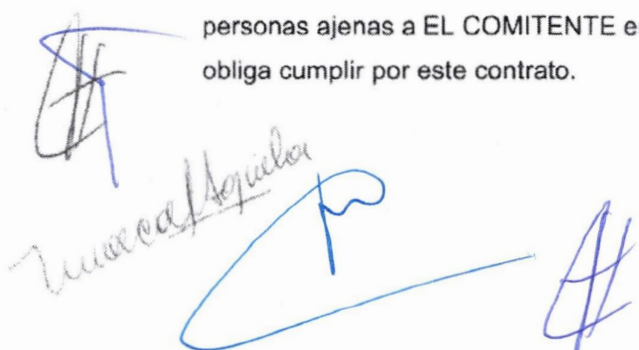 personas ajenas a EL COMITENTE e
obliga cumplir por este contrato.